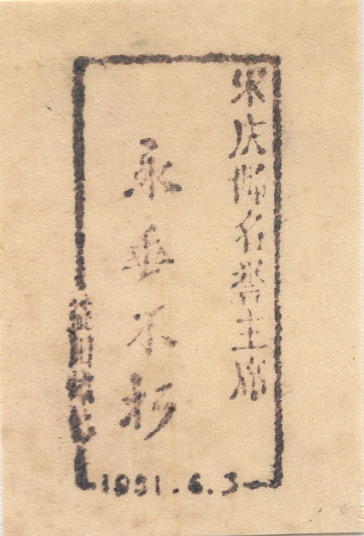 宋庆龄名誉主席
永垂不朽
1981.6.3